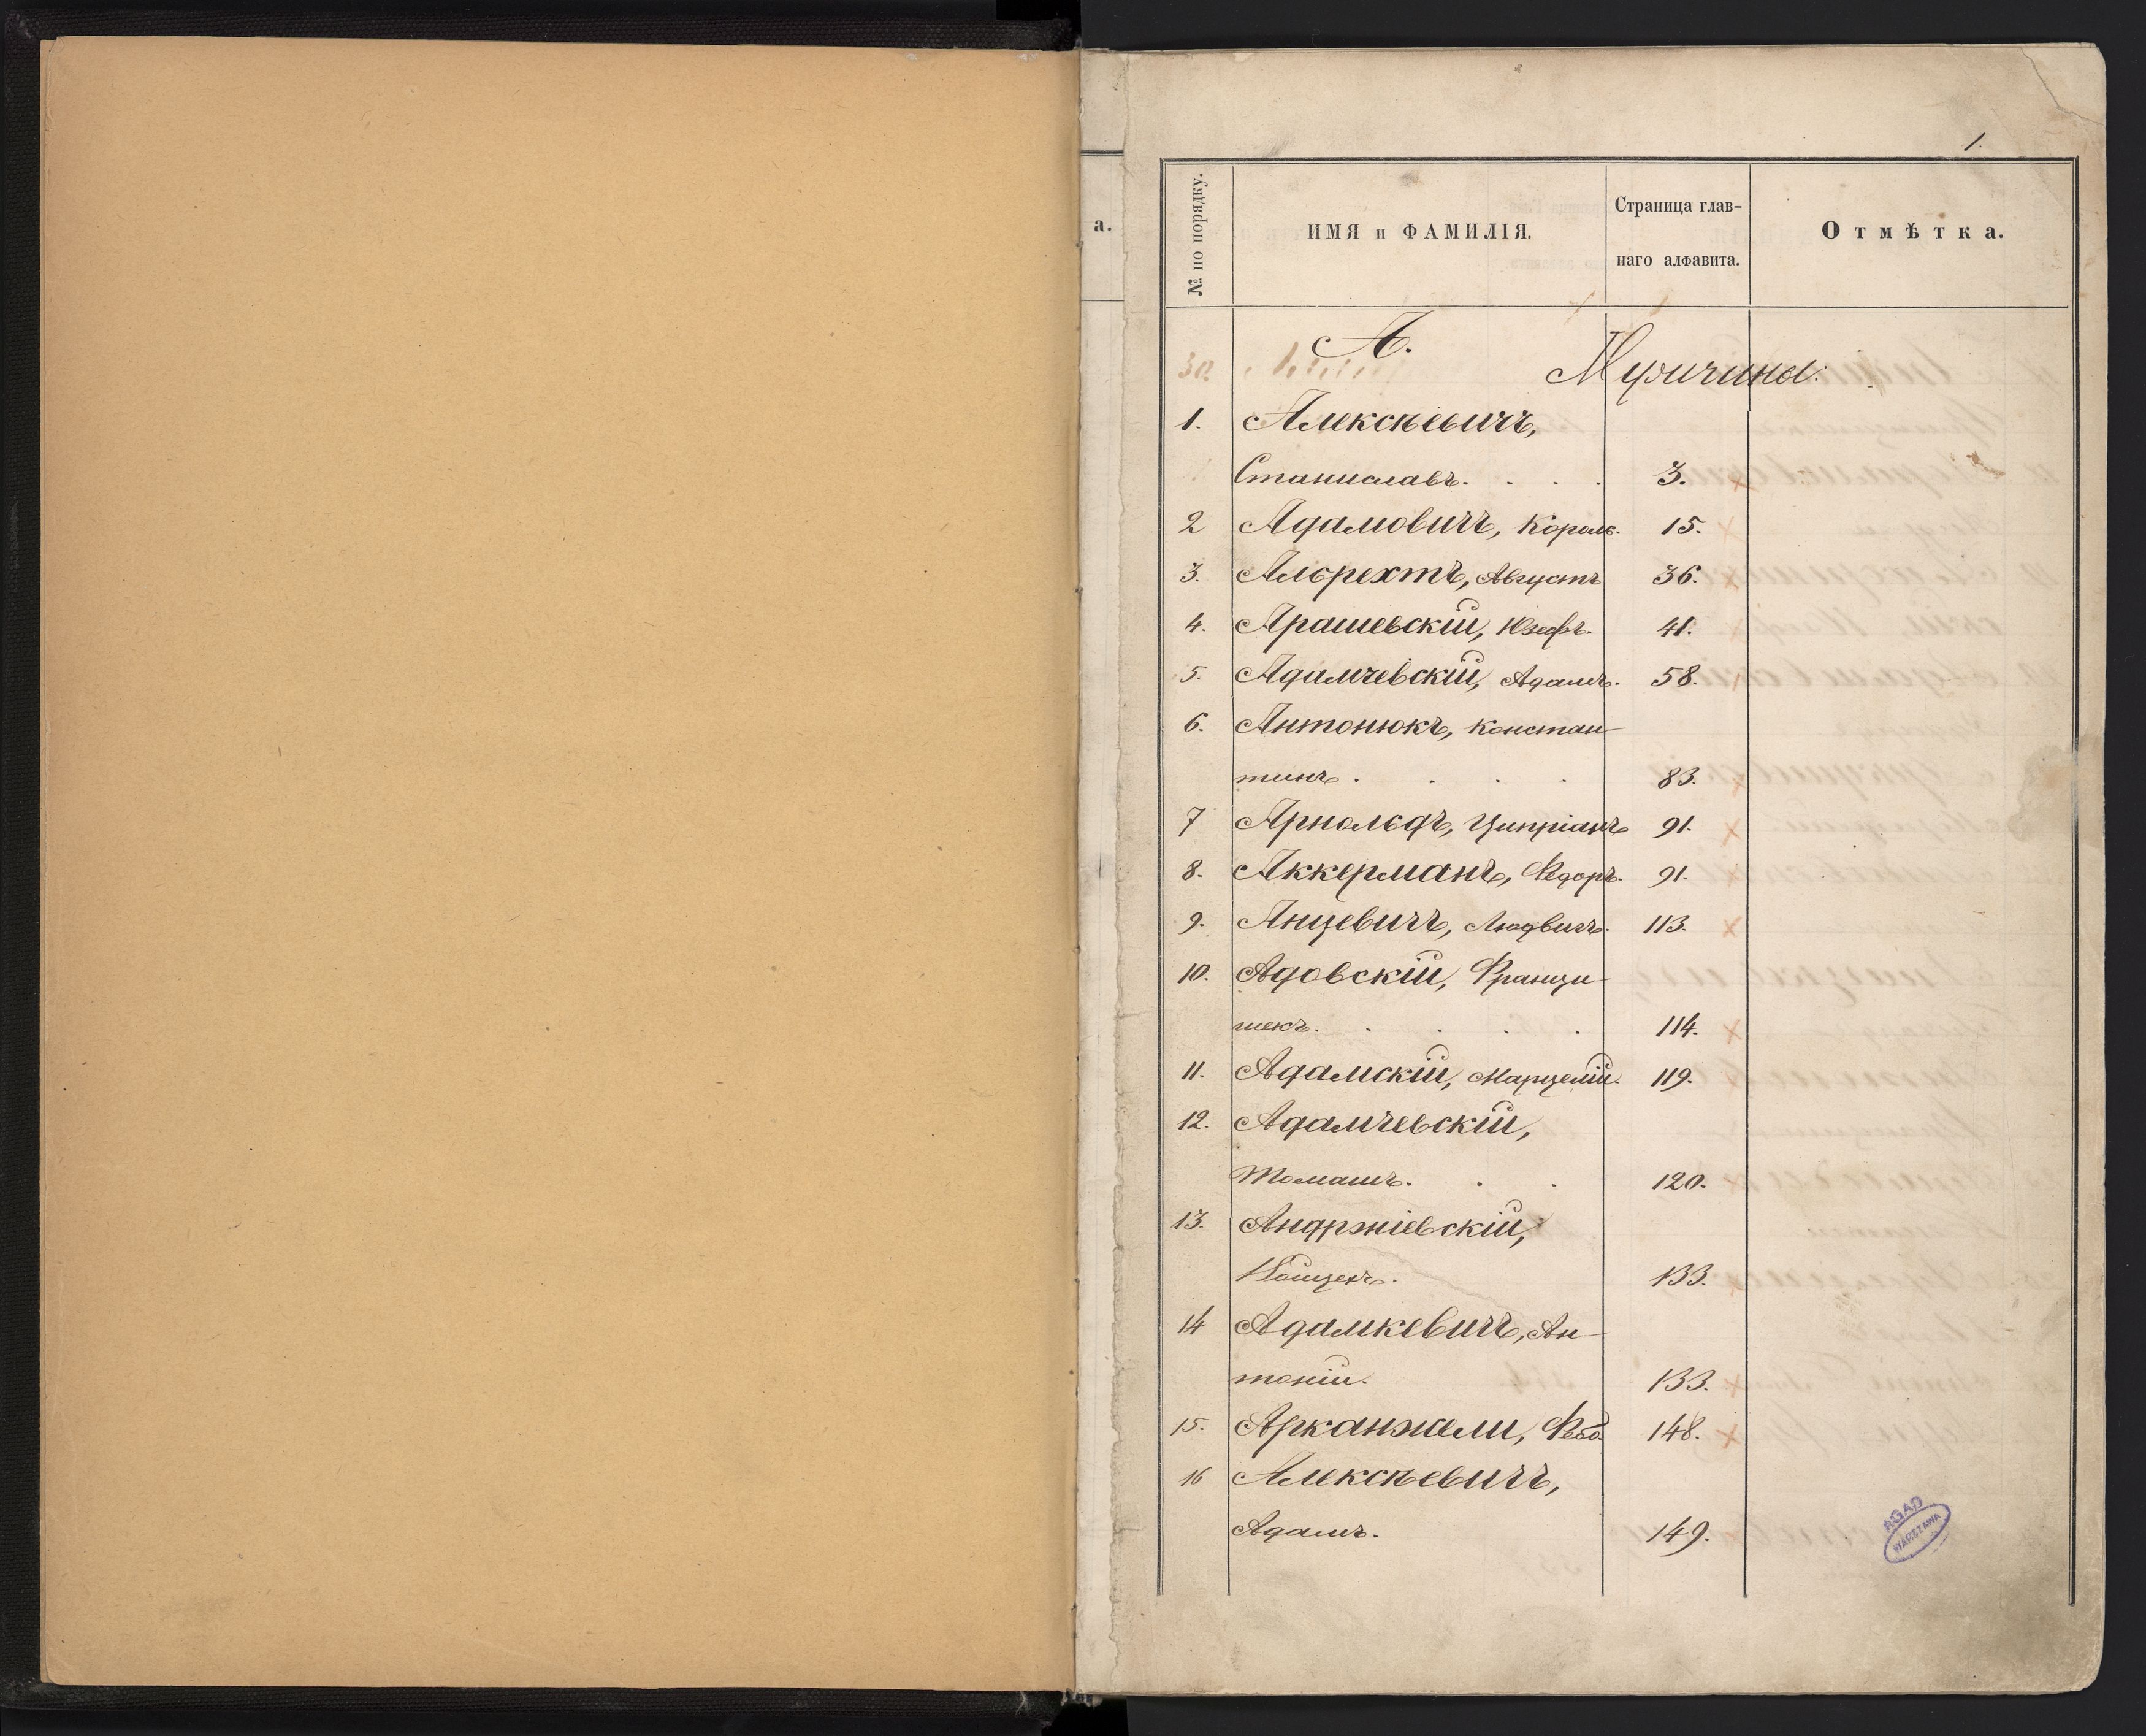 1.
а.
№ по порядку.
ИМЯ и ФАМИЛІЯ.
Страница глав-
наго алфавита.
Отмѣтка.
А.
30.
Мужчины.
1. Алексѣевичъ,
Станиславъ. 3.
2 Адамовичъ, Кароль. 15.
3. Альбрехтъ, Августъ 36.
4. Арашевскій, Юзефъ. 41.
5. Адамчевскій, Адамъ. 58.
6. Антонюкъ, Констан-
тинъ. 83.
7 Арнольдъ, Ципріанъ 91.
8. Аккерманъ, Федоръ. 91.
9. Анцевичъ, Людвигъ. 113.
10. Адовскій, Францы-
шекъ. 114.
11. Адамскій, Марцелій. 119.
12. Адамчевскій,
Томашъ. 120.
13. Андржіевскій,
Войцехъ. 133.
14 Адамкевичъ, Ан-
тоній. 133.
15. Арканжели, 148.
16 Алексѣевичъ,
Адамъ. 149.
AGAD
WARSZAWA